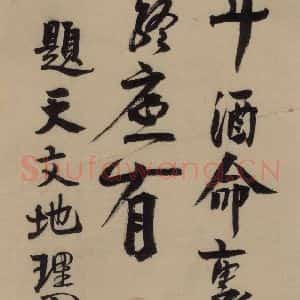 斗酒命
終應有
題天文地理
Shufawang.CN